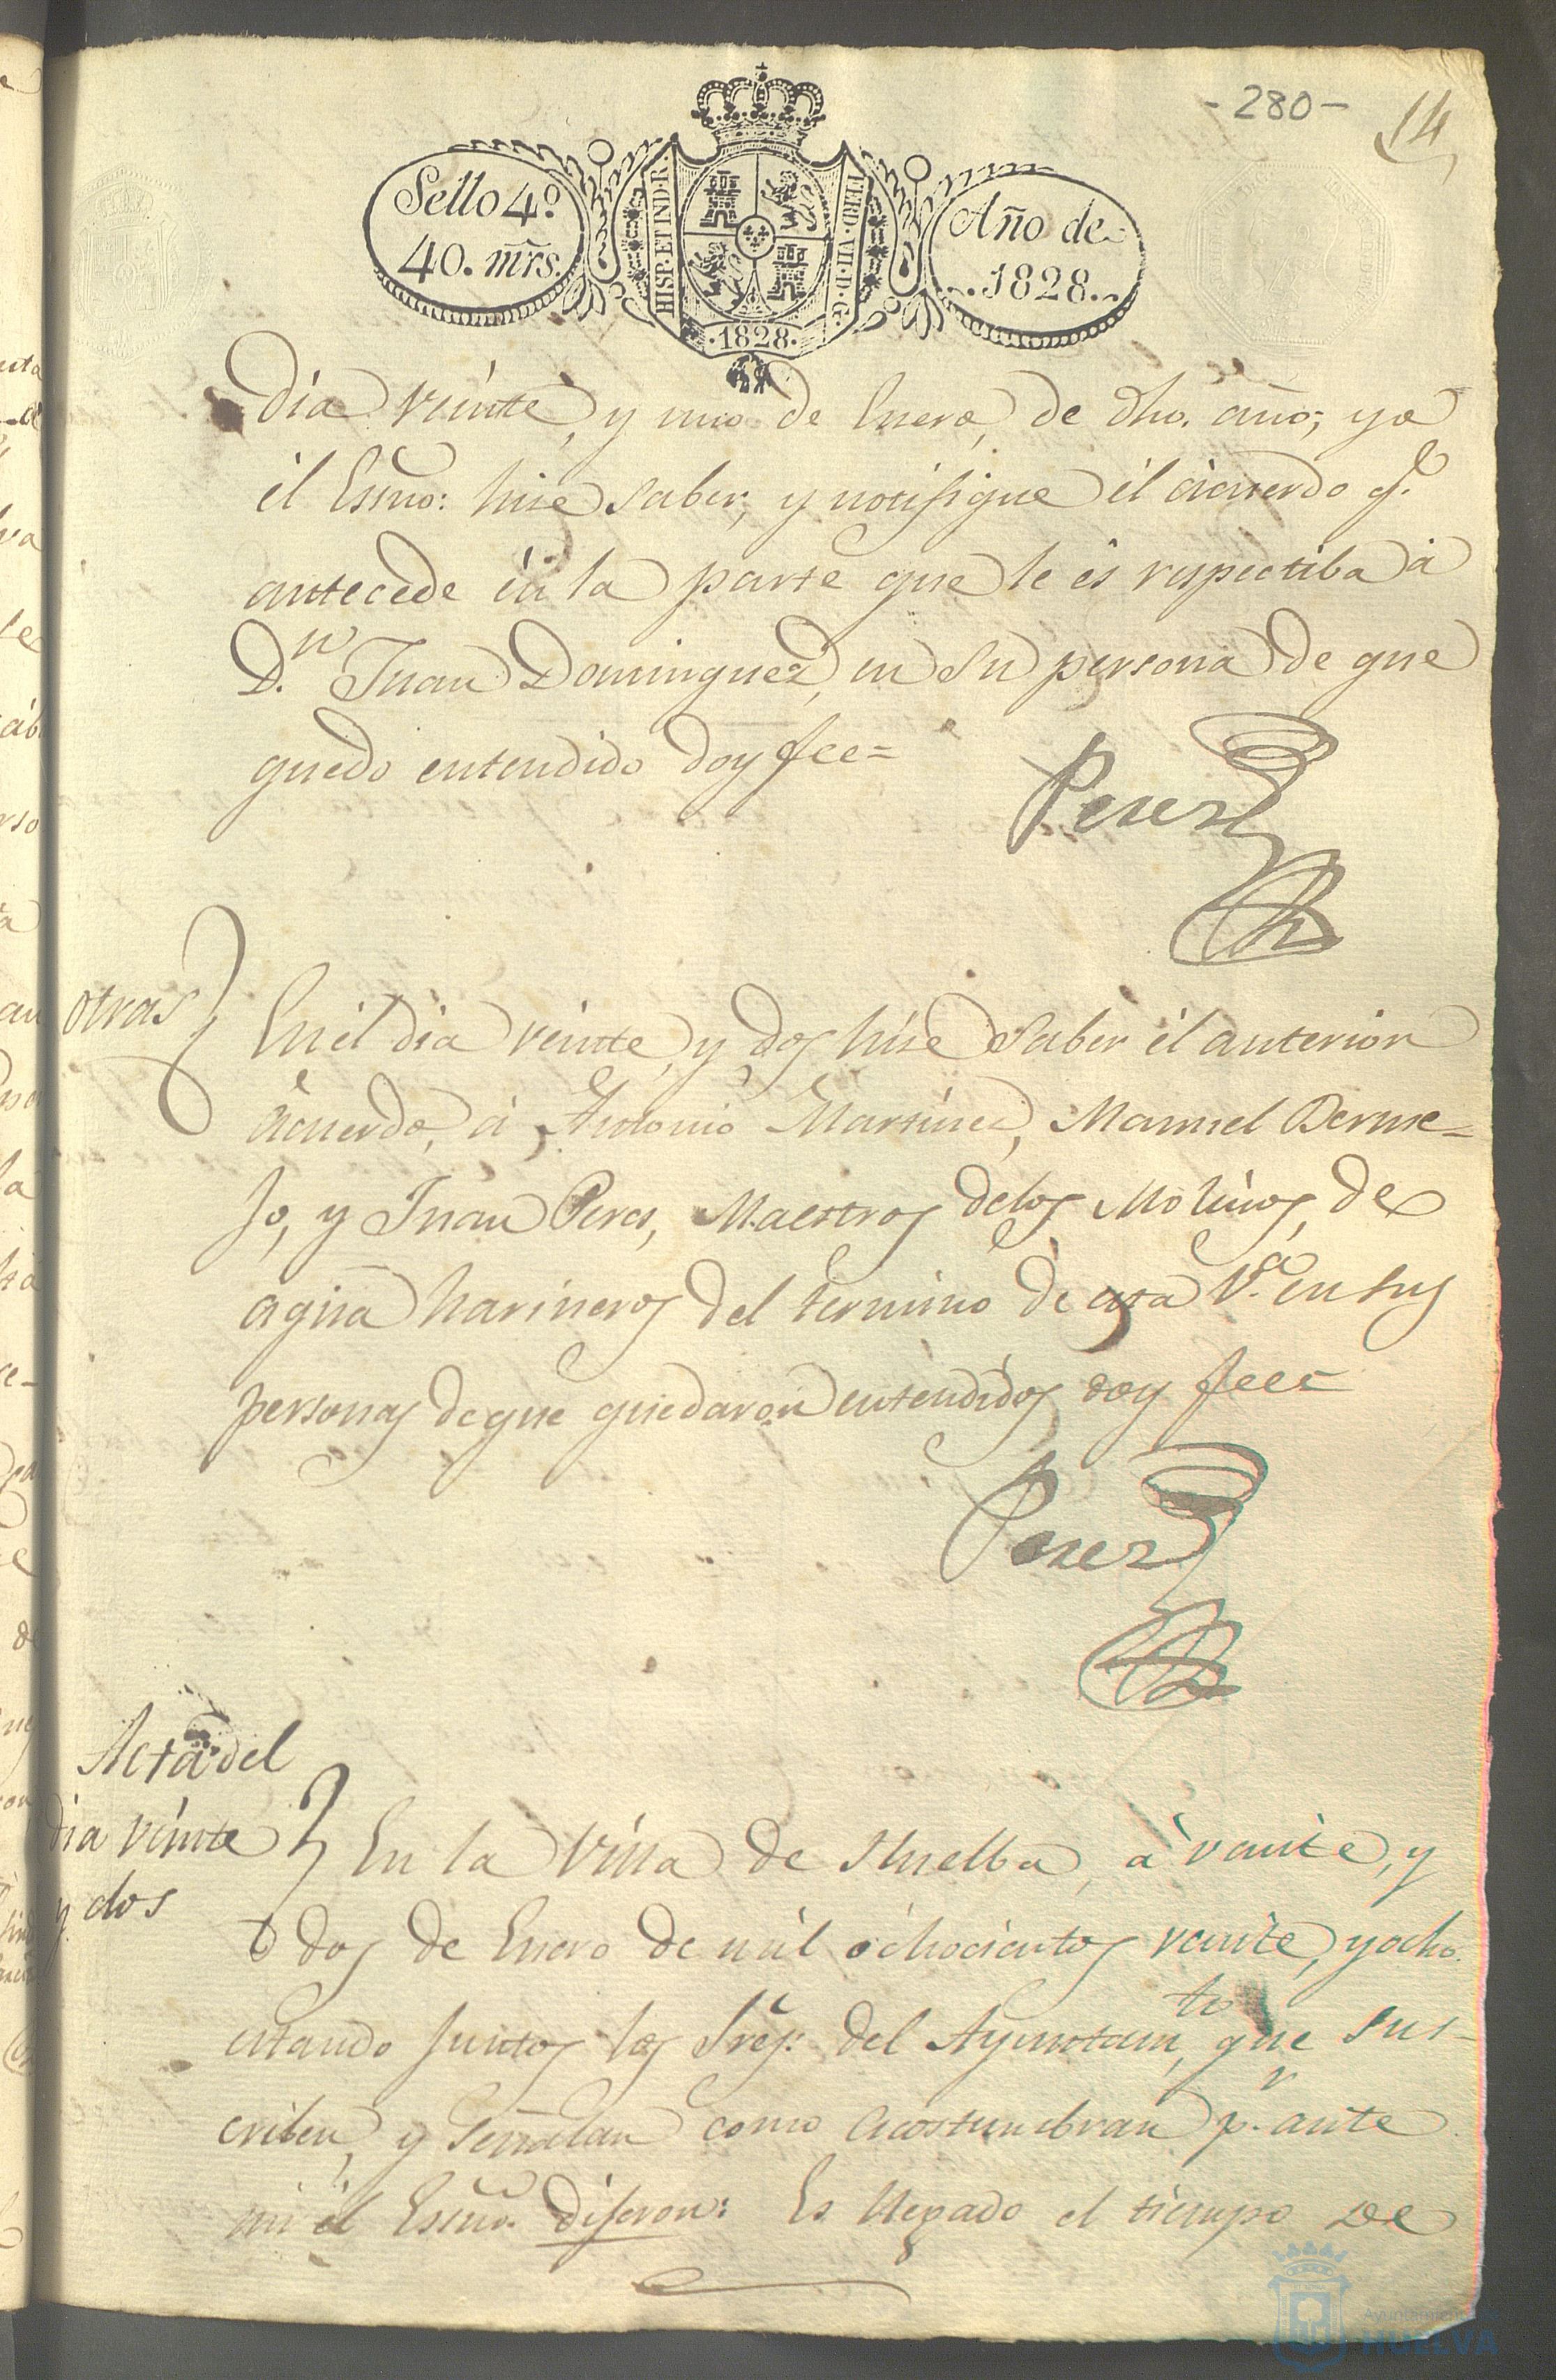 -280- 14
Sello 4º
40. mrs.
HISP. ET IND. R.
FERD. VII. D. G.
·1828·
Año de
1828.
dia veinte, y uno de Enero, de dho. año; yo
él Esno: hise saber, y notifique él ácuerdo q.e
antecede én la parte que le és respectiba á
D.n Juan Dominguez, en su persona de que
quedo entendido doy fee=
Perez
otras
En él dia veinte, y dos hise saber él anterior
ácuerdo, á Antonio Martinez, Manuel Berme=
jo, y Juan Peres, Maestros delos Molinos, de
agua harineros del termino de esta V.a en sus
personas de que quedaron entendidos doy fee=
Perez
Acta del
dia veinte
y dos
En la Villa de Huelba, à veinte, y
dos de Enero de mil óchocientos veinte, y ocho.
estando juntos los Sres: del Ayuntam.to, que sus-
criben, y señalan como acostumbran p.r ante
mi él Esno. dijeron: Es llegado el tiempo de
Ayuntamiento de
HUELVA